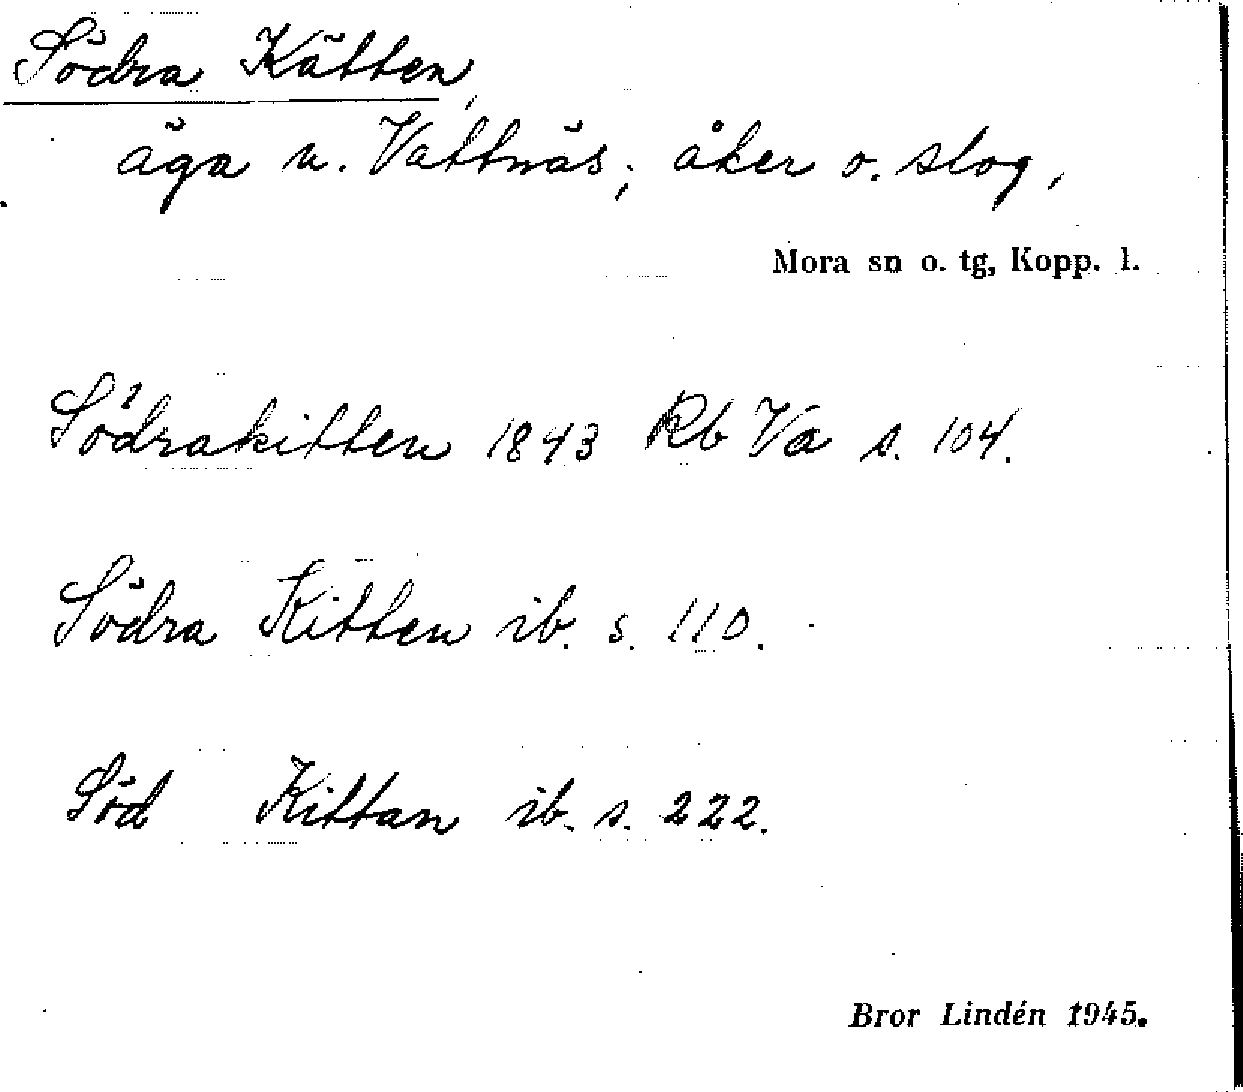 Södra Kätten,
äga n. Vattnäs; åker o. slog,
Mora sn o. tg, Kopp. l.
Södrakitten 1843 Rb Va s. 104.
Södra Kitten ib. s. 110.
Söd Kittan ib. s. 222.
Bror Lindén 1945.